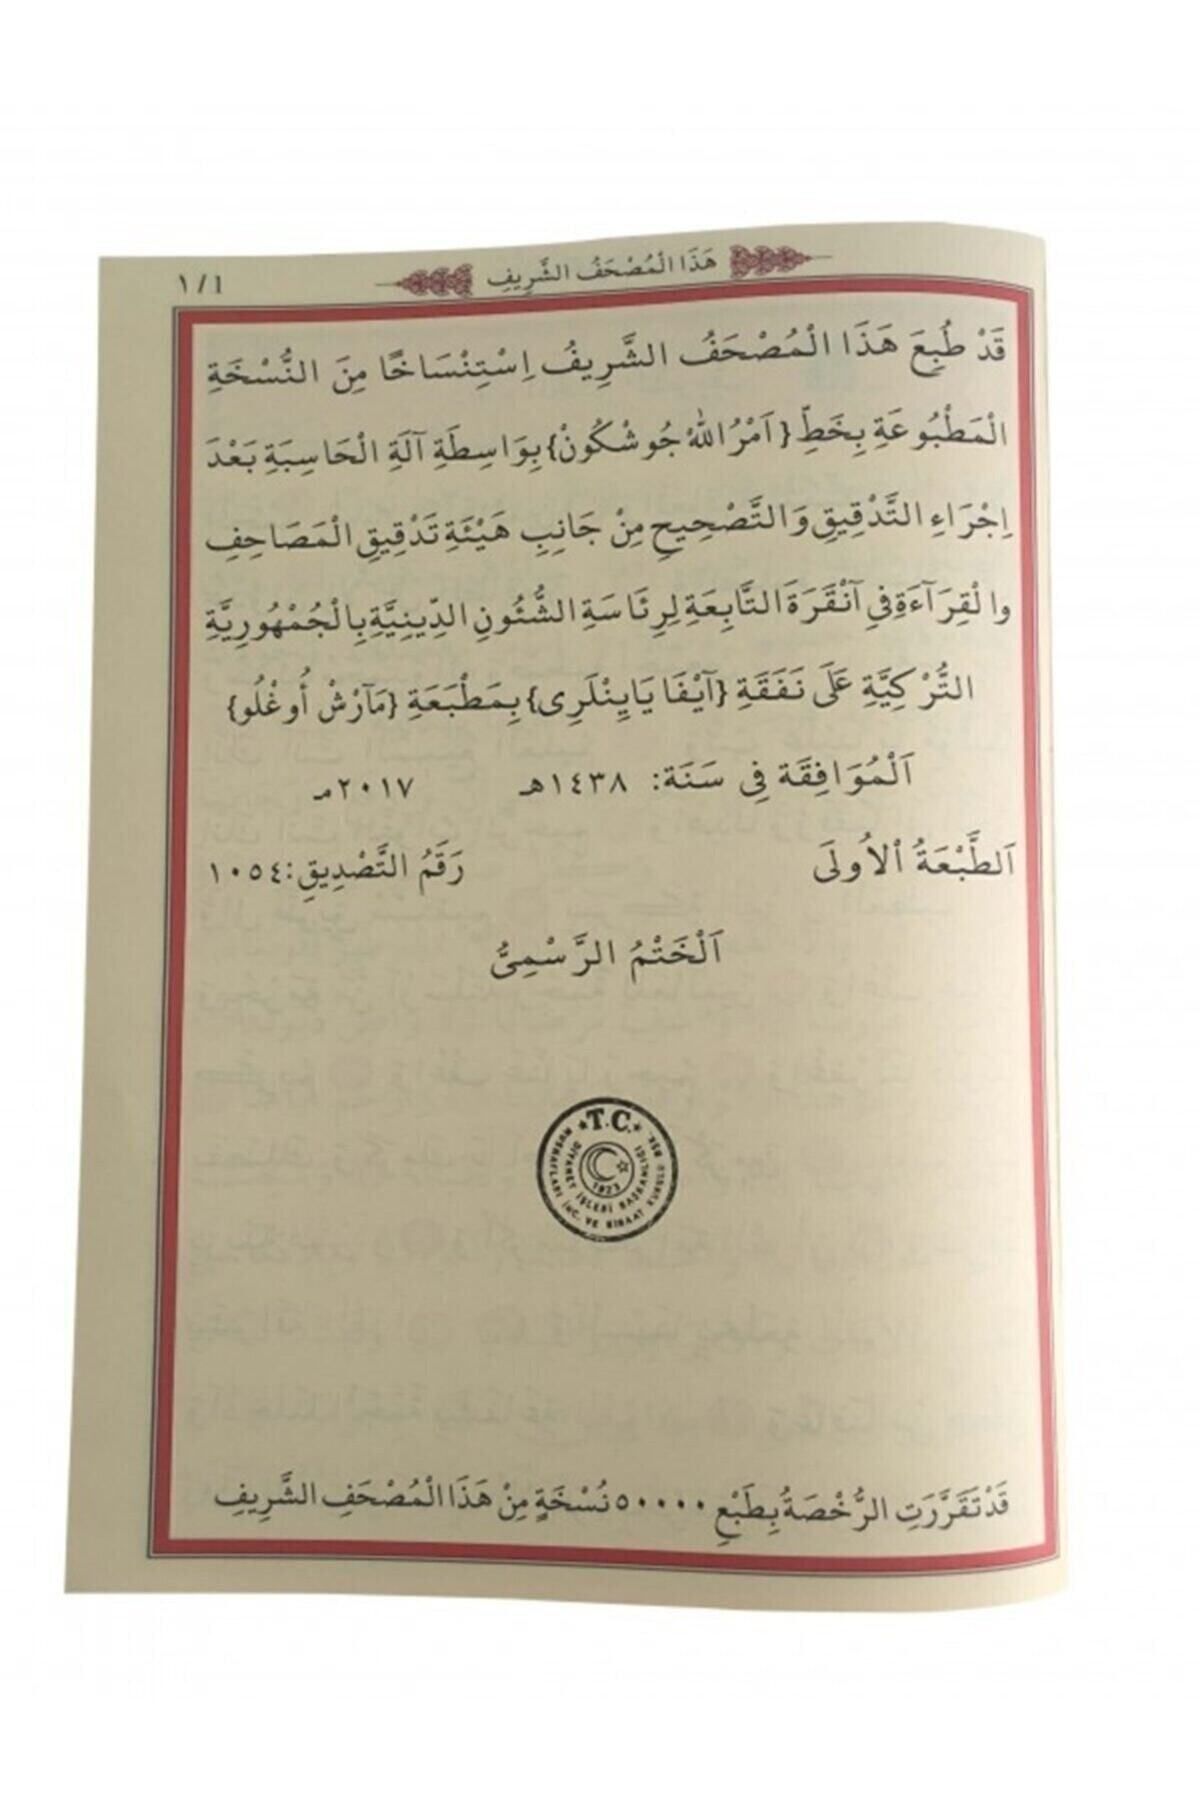 هَذَا الْمُصْحَفُ الشَّرِيفِ
١/١
قَدْ طُبِعَ هَذَا الْمُصْحَفُ الشَّرِيفُ اِسْتِنْسَاخًا مِنَ النُّسْخَةِ
الْمَطْبُوعَةِ بِخَطِّ {اَمْرُ اللّٰهْ جُوشْكُونْ} بِوَاسِطَةِ آلَةِ الْحَاسِبَةِ بَعْدَ
اِجْرَاءِ التَّدْقِيقِ وَالتَّصْحِيحِ مِنْ جَانِبِ هَيْئَةِ تَدْقِيقِ الْمَصَاحِفِ
والْقِرَآءَةِ فِي آنْقَرَةَ التَّابِعَةِ لِرِئَاسَةِ الشُّئُونِ الدِّينِيَّةِ بِالْجُمْهُورِيَّةِ
التُّرْكِيَّةِ عَلَى نَفَقَةِ {آيْفَا يَايِنْلَرِى} بِمَطْبَعَةِ {مَآرْشْ أُوغْلُو}
اَلْمُوَافِقَة فِي سَنَة: ١٤٣٨هـ ٢٠١٧مـ
اَلطَّبْعَةُ الْاُولَى رَقَمُ التَّصْدِيقِ: ١٠٥٤
اَلْخَتْمُ الرَّسْمِىُّ
★T.C.★
DİYANET İŞLERİ BAŞKANLIĞI
MUSHAFLARI İNC. VE KIRAAT KURULU BŞK.
1923
قَدْ تَقَرَّرَتِ الرُّخْصَةُ بِطَبْعِ ٥٠٠٠٠ نُسْخَةٍ مِنْ هَذَا الْمُصْحَفِ الشَّرِيفِ